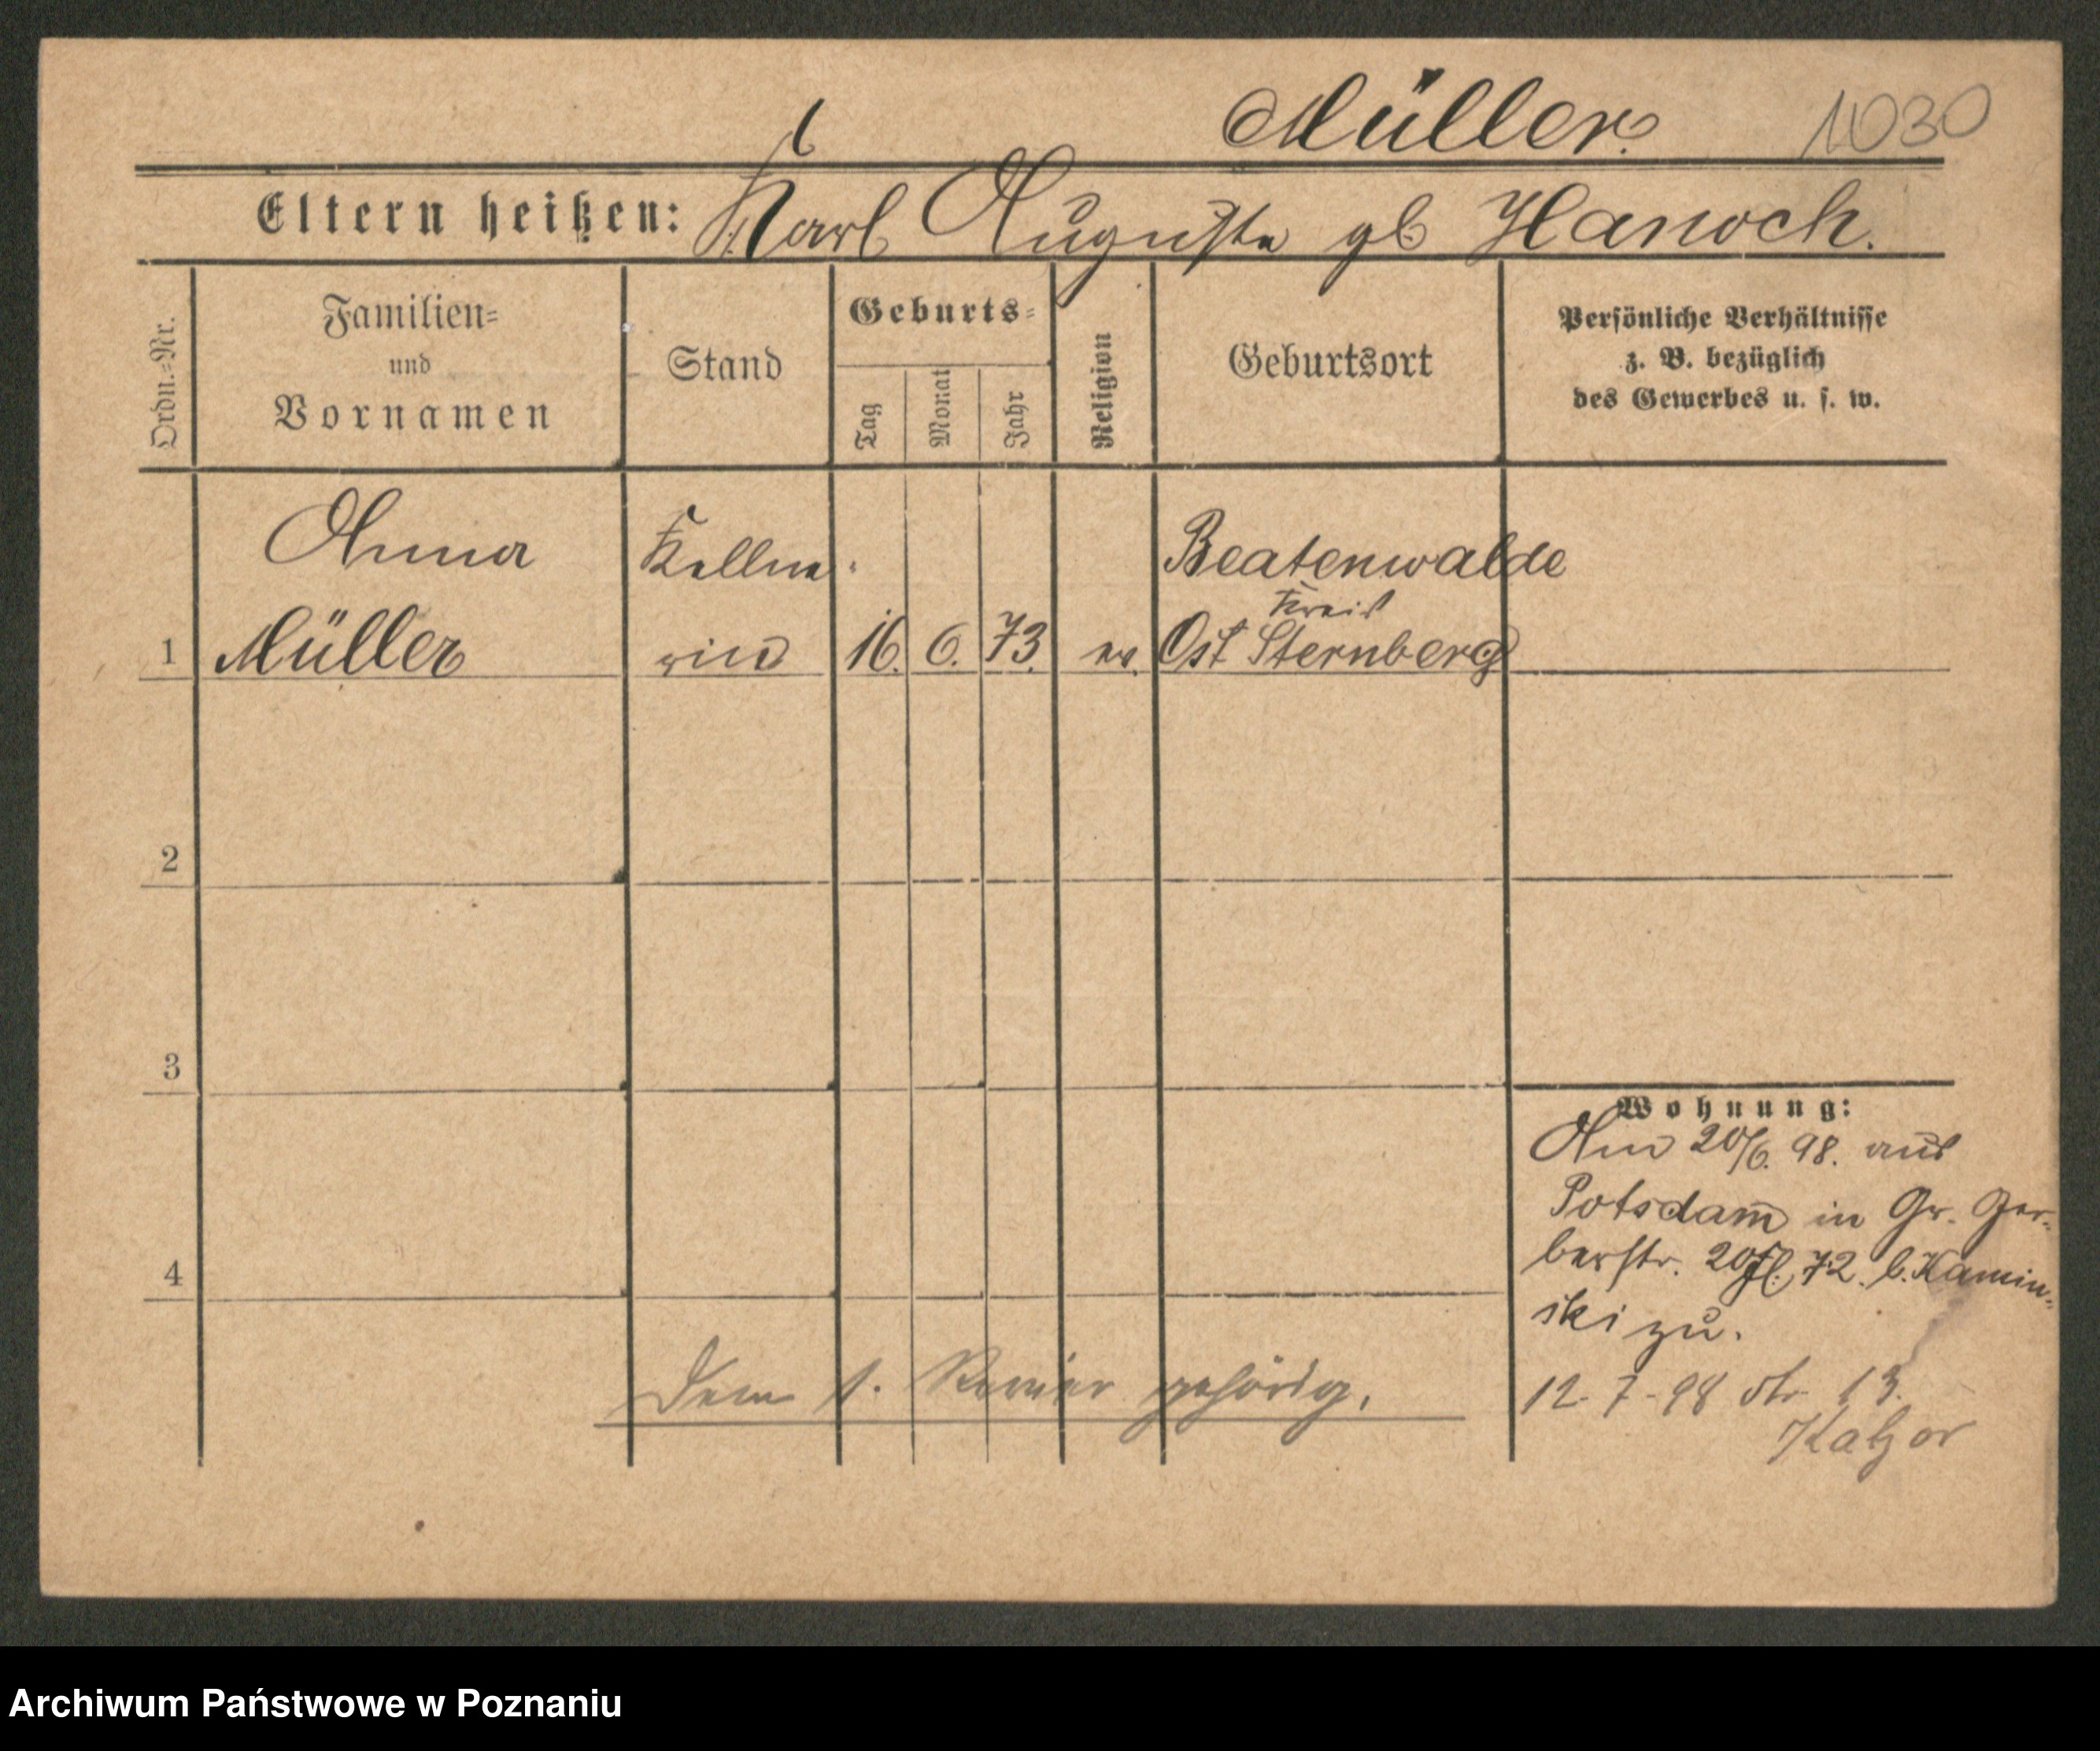 Müller. 1030
Eltern heißen: Karl Auguste gb Hanoch.
Ordn.=Nr.
Familien=
und
Vornamen
Stand
Geburts=
Tag
Monat
Jahr
Religion
Geburtsort
Persönliche Verhältnisse
z. B. bezüglich
des Gewerbes u. s. w.
Anna Kellne- Beatenwalde
Kreis
1 Müller rin 16. 6. 73. ev. Ost Sternberg
2
3
4
Wohnung:
Am 20/6. 98. aus
Potsdam in Gr. Ger-
berstr. 20 72. b. Kamin-
ski zu.
12-7-98 13.
Dem 1. Revier gehörig.
Archiwum Państwowe w Poznaniu